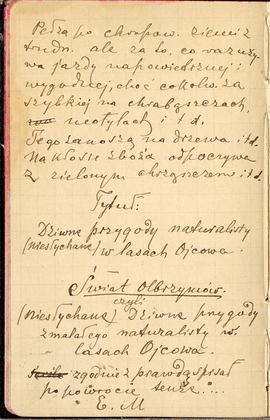 Pędzą po chropow. ziemi z
trudn. ale za to, co za uży-
wa jazdy napowietrznej i
wygodnej, choć cokolw. za
szybkiej na chrabąszczach,
motylach i t d.
Tego zanoszą na drzewa i t.d.
Na kłosie zboża odpoczywa
z zielonym chrząszczem i t.d.
Tytuł:
Dziwne przygody naturalisty
(niesłychane) w lasach Ojcowa.
Świat Olbrzymów.
czyli
(Niesłychane) Dziwne przygody
zmalałego naturalisty w
lasach Ojcowa.
zgodnie z prawdą spisał
po powrocie tenże....
E. M